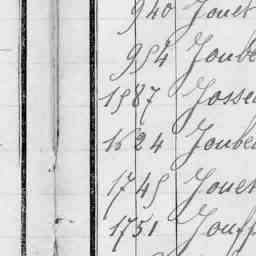 940 Jouet
954 Joube
1587 Josse
1624 Joube
1745 Joue
1751 Jouff